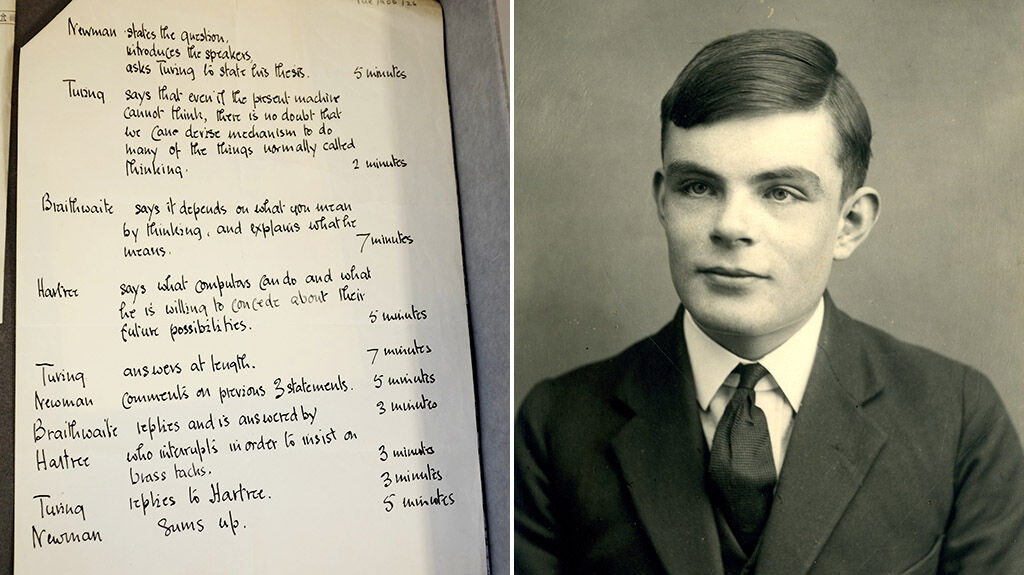 Newman states the question,
introduces the speakers,
asks Turing to state his thesis. 5 minutes
Turing says that even if the present machine
cannot think, there is no doubt that
we can devise mechanism to do
many of the things normally called
thinking. 2 minutes
Braithwaite says it depends on what you mean
by thinking, and explains what he
means. 7 minutes
Hartree says what computers can do and what
he is willing to concede about their
future possibilities. 5 minutes
Turing answers at length. 7 minutes
Newman comments on previous 3 statements. 5 minutes
Braithwaite replies and is answered by 3 minutes
Hartree who interrupts in order to insist on
brass tacks. 3 minutes
Turing replies to Hartree. 3 minutes
Newman sums up. 5 minutes